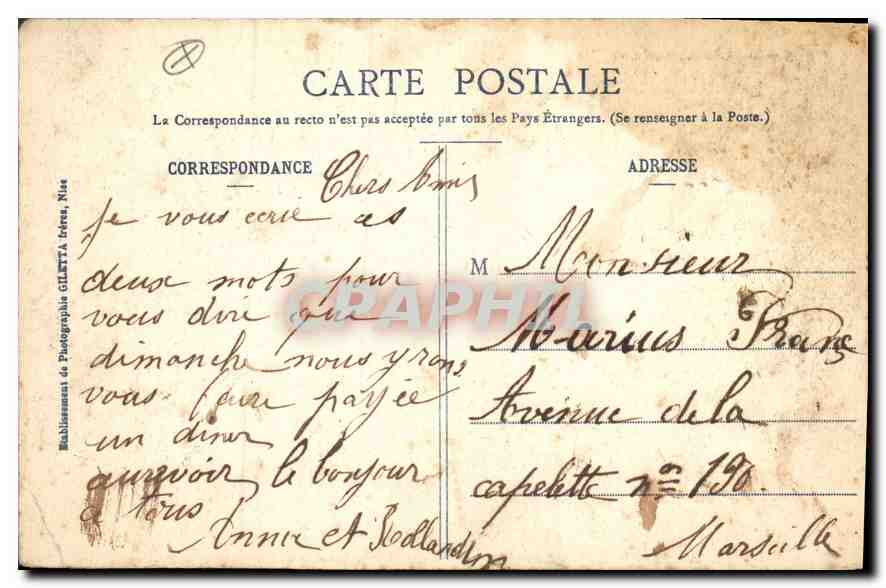 CARTE POSTALE
La Correspondance au recto n'est pas acceptée par tous les Pays Étrangers. (Se renseigner à la Poste.)
CORRESPONDANCE
Chers Amis
Je vous ecrie ces
deux mots pour
vous dire que
dimanche nous yrons
vous faire payée
un diner
aurevoir le bonjour
a tous
Annie et
ADRESSE
M Monsieur
Marius
Avenue de la
capelette no 190.
Marseille
Etablissement de Photographie GILETTA frères, Nice
CRAPHIL